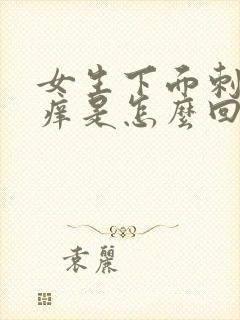 女生下面刺
痒是怎麼回
袁麗